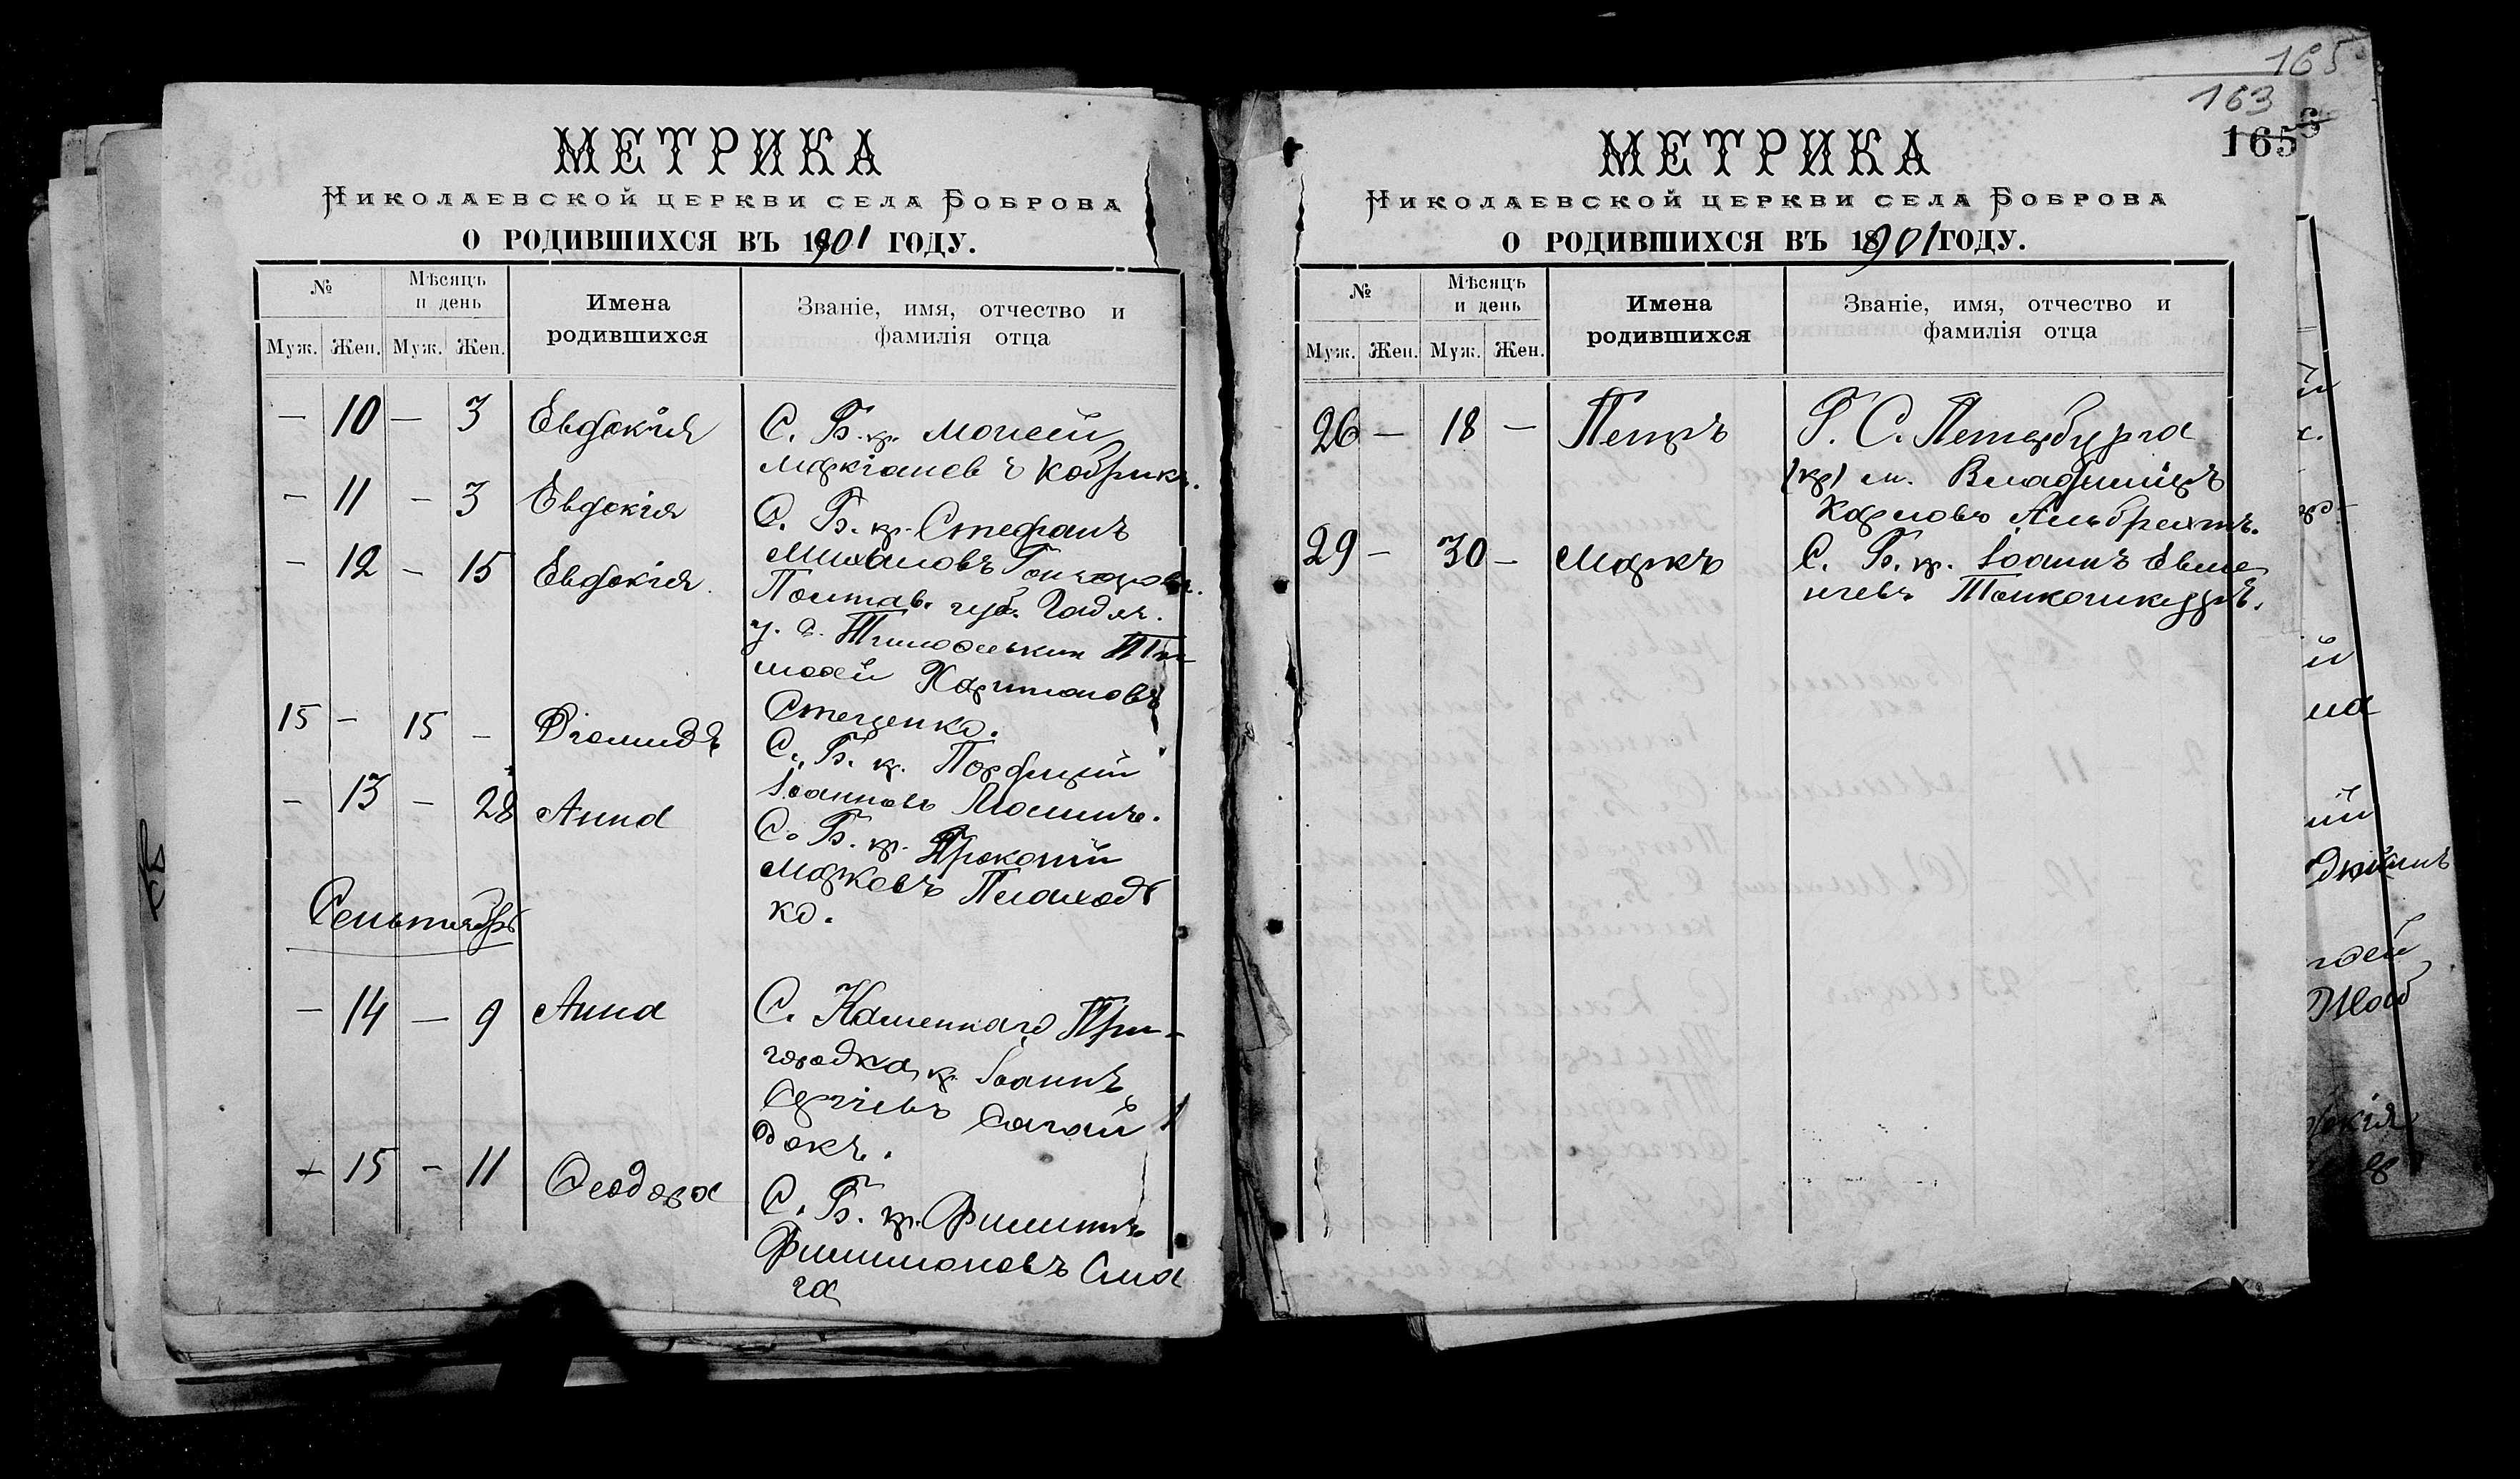 МЕТРИКА
НИКОЛАЕВСКОЙ ЦЕРКВИ СЕЛА БОБРОВА
О РОДИВШИХСЯ ВЪ 1901 ГОДУ.
№ Мѣсяцъ и день Имена родившихся Званіе, имя, отчество и фамилія отца
Муж. Жен. Муж. Жен.
— 10 — 3 Евдокія С. Б. кр. Моисей
Маркіановъ
— 11 — 3 Евдокія С. Б. кр. Стефанъ
Михаиловъ Гончаровъ.
— 12 — 15 Евдокія Полтав. губ. Гадяч.
у. с. Тимофей Харитоновъ
Стеценко.
15 — 15 — Діомидъ С. Б. к. Порфирій
Іоанновъ
— 13 — 28 Анна С. Б. кр. Прокопій
Марковъ Плаход
ко.
Сентябрь
— 14 — 9 Анна С. Каменнаго При-
городка кр. Іоаннъ
Сергіевъ Сагай
докъ.
— 15 — 11 Феодора С. Б. кр. Филиппъ
Филимоновъ
165
163
165
МЕТРИКА
НИКОЛАЕВСКОЙ ЦЕРКВИ СЕЛА БОБРОВА
О РОДИВШИХСЯ ВЪ 1901 ГОДУ.
№ Мѣсяцъ и день Имена родившихся Званіе, имя, отчество и фамилія отца
Муж. Жен. Муж. Жен.
26 — 18 — Петръ Г. С. Петербурга
(кр) м. Владиміръ
Карловъ Альбрехтъ.
29 — 30 — Маркъ С. Б. кр. Іоаннъ Евме
ніевъ